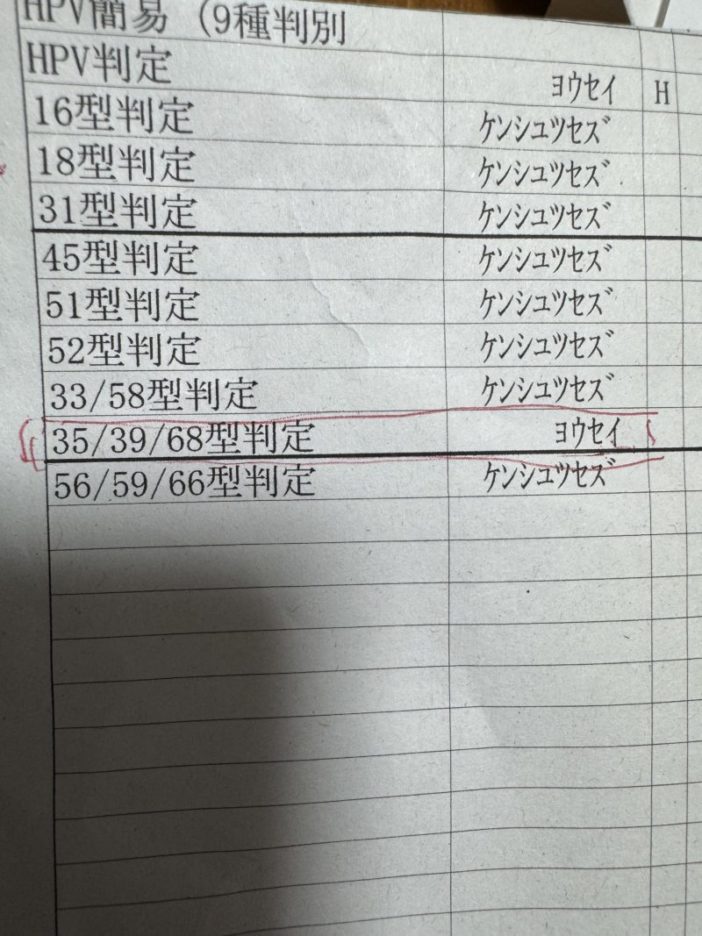 HPV簡易 (9種判別
HPV判定 ﾖｳｾｲ H
16型判定 ｹﾝｼｭﾂｾｽﾞ
18型判定 ｹﾝｼｭﾂｾｽﾞ
31型判定 ｹﾝｼｭﾂｾｽﾞ
45型判定 ｹﾝｼｭﾂｾｽﾞ
51型判定 ｹﾝｼｭﾂｾｽﾞ
52型判定 ｹﾝｼｭﾂｾｽﾞ
33/58型判定 ｹﾝｼｭﾂｾｽﾞ
35/39/68型判定 ﾖｳｾｲ
56/59/66型判定 ｹﾝｼｭﾂｾｽﾞ